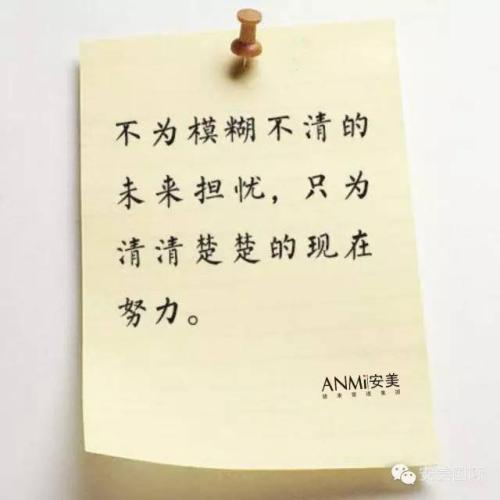 不为模糊不清的
未来担忧，只为
清清楚楚的现在
努力。
ANMi安美
健康管理集团
安美国际